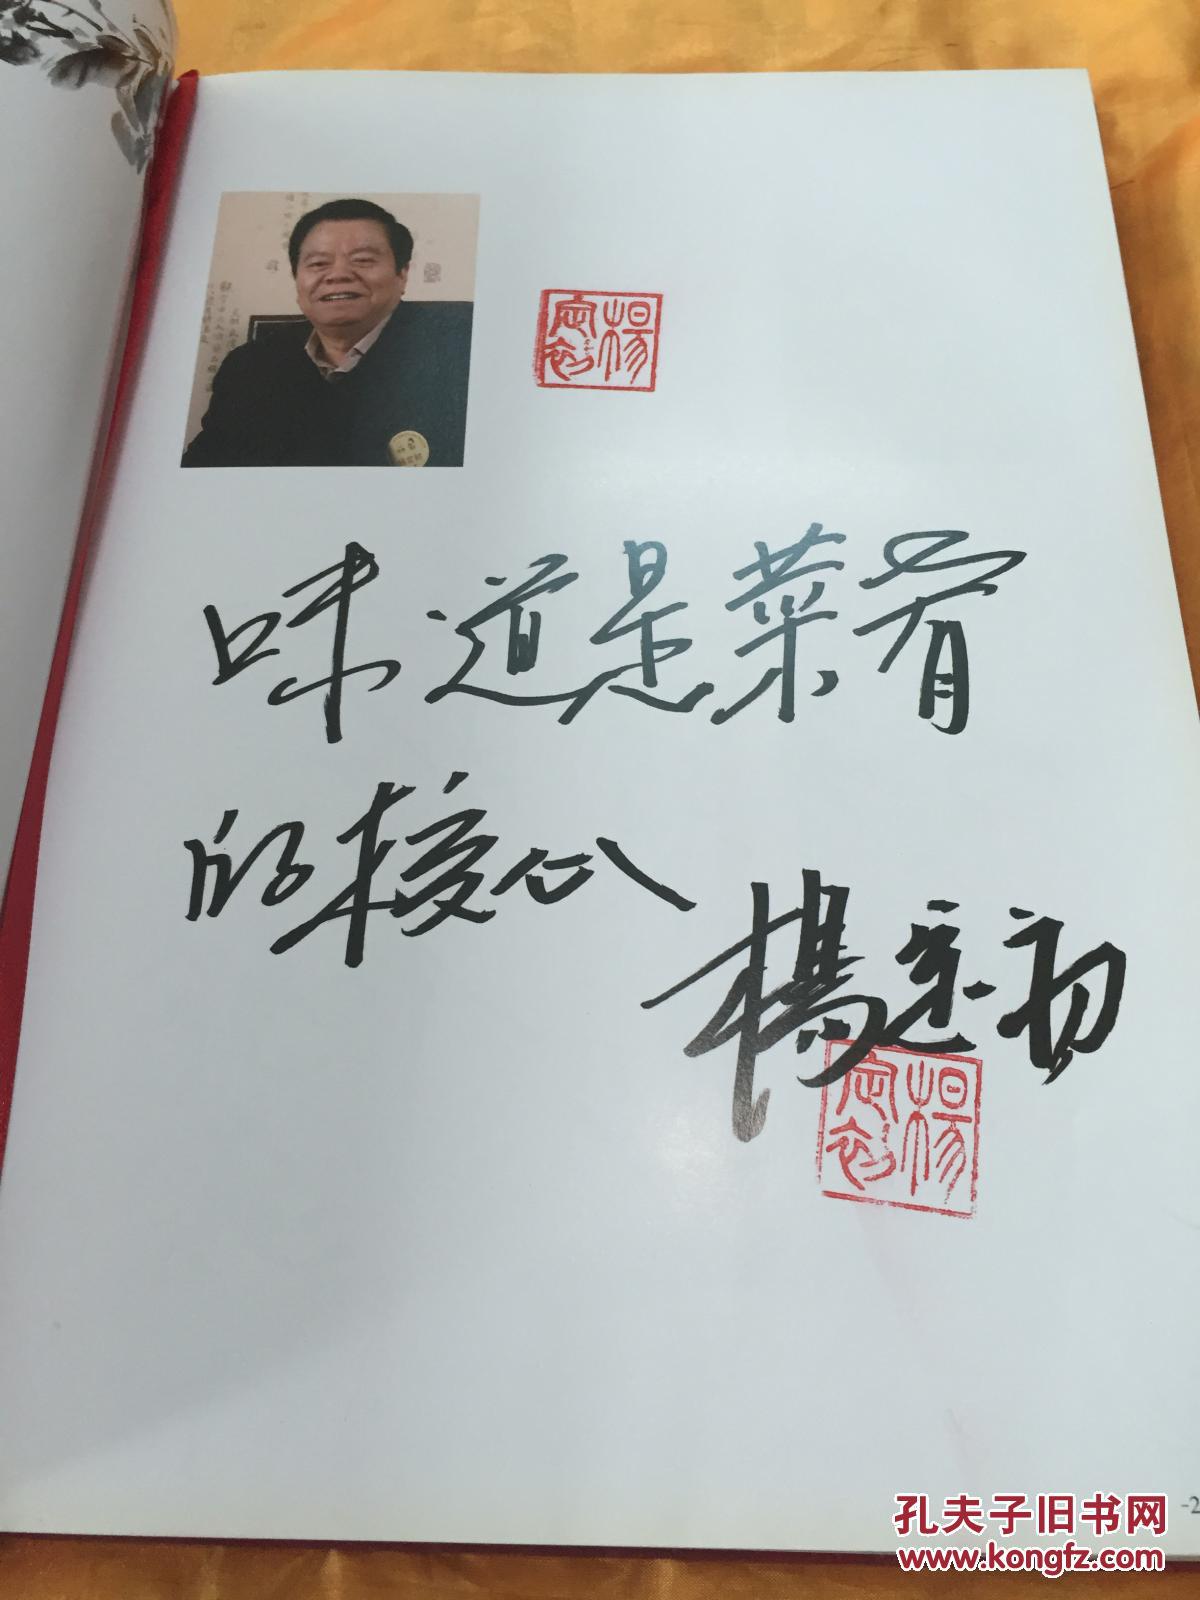 楊定初
味道是菜肴
的核心
楊定初
楊定初
-2
孔夫子旧书网
www.kongfz.com